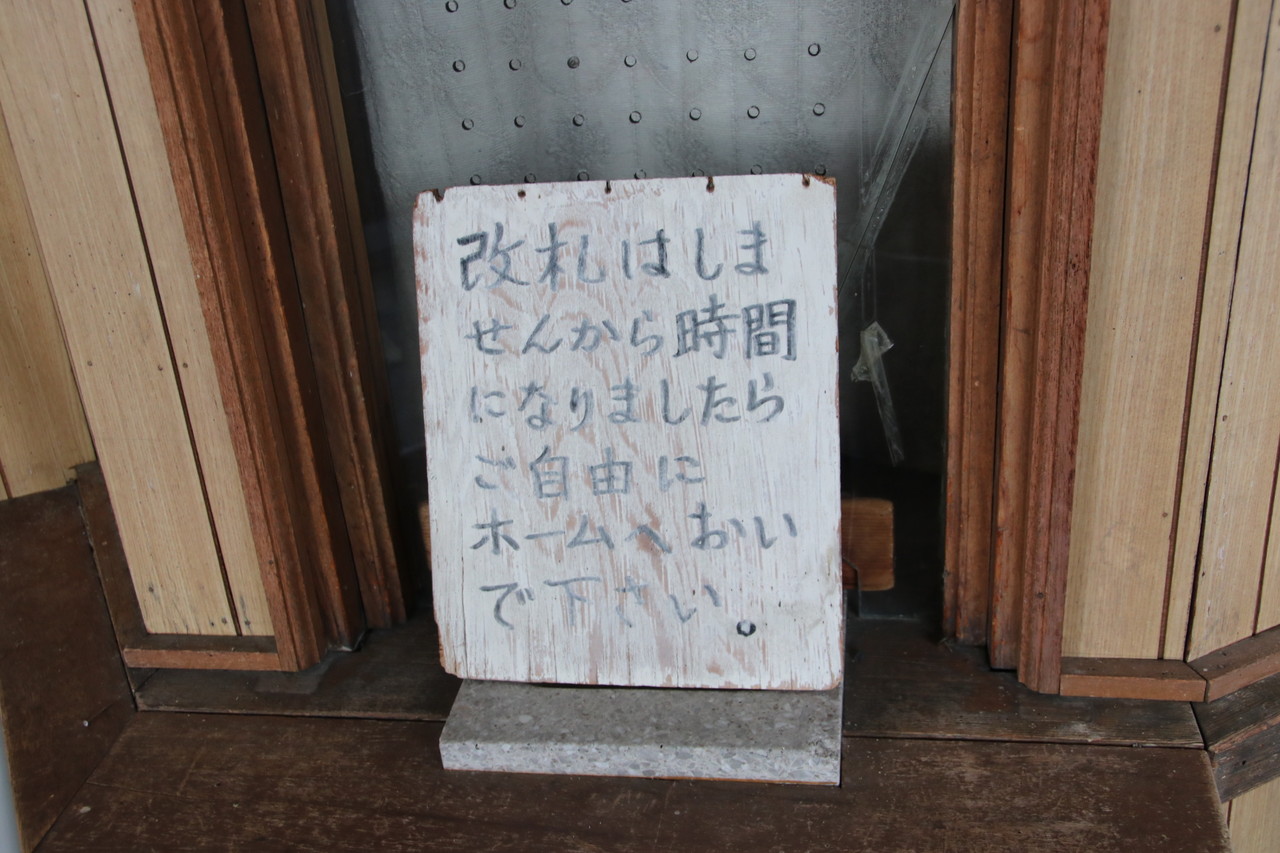 改札はしま
せんから時間
になりましたら
ご自由に
ホームへおい
で下さい。